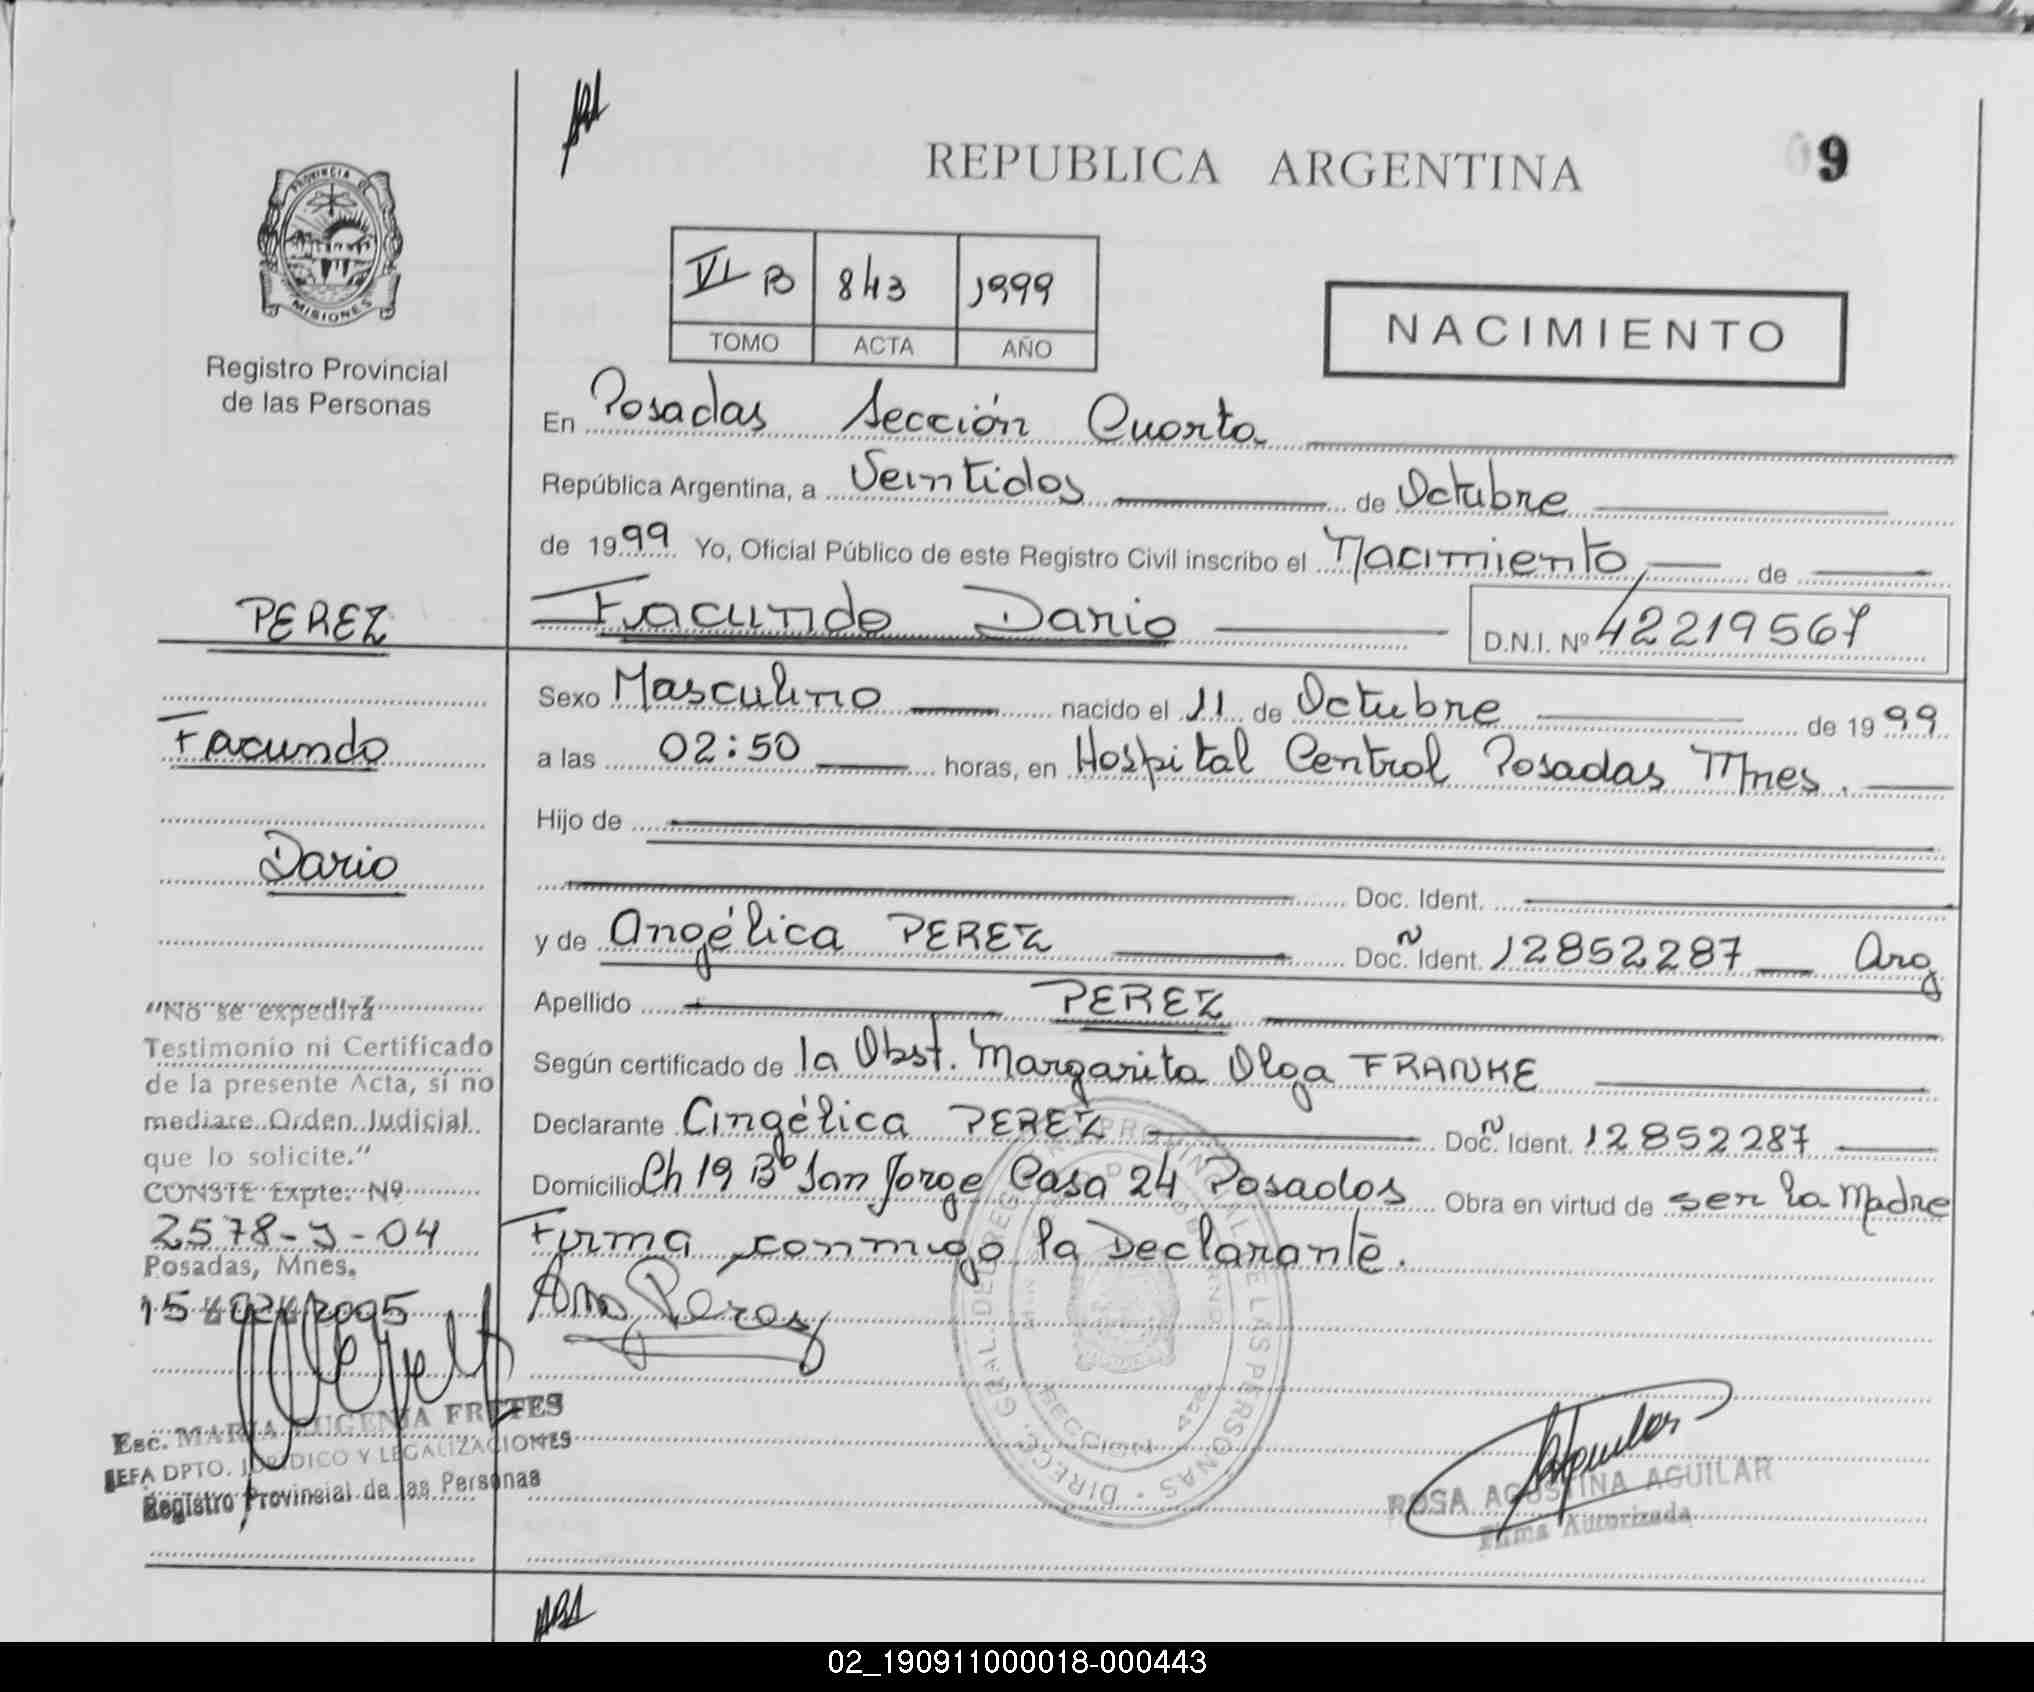 REPUBLICA ARGENTINA
09
PROVINCIA DE
MISIONES
Registro Provincial
de las Personas
VI B 843 1999
TOMO ACTA AÑO
NACIMIENTO
En Posadas Sección Cuarta
República Argentina, a Veintidos de Octubre
de 1999 Yo, Oficial Público de este Registro Civil inscribo el Nacimiento de
Facundo Dario D.N.I. Nº 42219567
PEREZ
Facundo
Dario
Sexo Masculino nacido el 11 de Octubre de 1999
a las 02:50 horas, en Hospital Central Posadas Mnes.
Hijo de
Doc. Ident.
y de Angélica PEREZ Doc. Ident. 12852287 Arg
Apellido PEREZ
Según certificado de la Obst. Margarita Olga FRANKE
Declarante Angélica PEREZ Doc. Ident. 12852287
Domicilio Ch 19 Bº San Jorge Casa 24 Posadas Obra en virtud de ser la Madre
Firma conmigo la Declarante.
"No se expedirá
Testimonio ni Certificado
de la presente Acta, sí no
mediare Orden Judicial
que lo solicite."
CONSTE Expte. Nº
2578-J-04
Posadas, Mnes.
15 2005
Esc. MARIA EUGENIA FRETES
JEFA DPTO. JURIDICO Y LEGALIZACIONES
Registro Provincial de las Personas
Perez
DIRECC. GRAL. DEL REGISTRO PROVINCIAL DE LAS PERSONAS
SECCION 4ta
Aguilar
ROSA AGUSTINA AGUILAR
Firma Autorizada
02_190911000018-000443